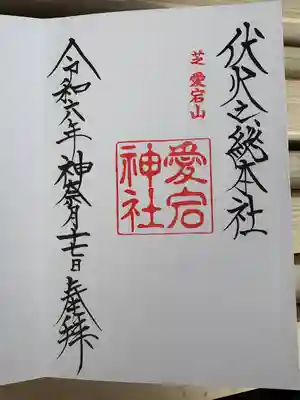 伏火之総本社
芝 愛宕山
愛宕
神社
令和六年 神奈月十七日 奉拝